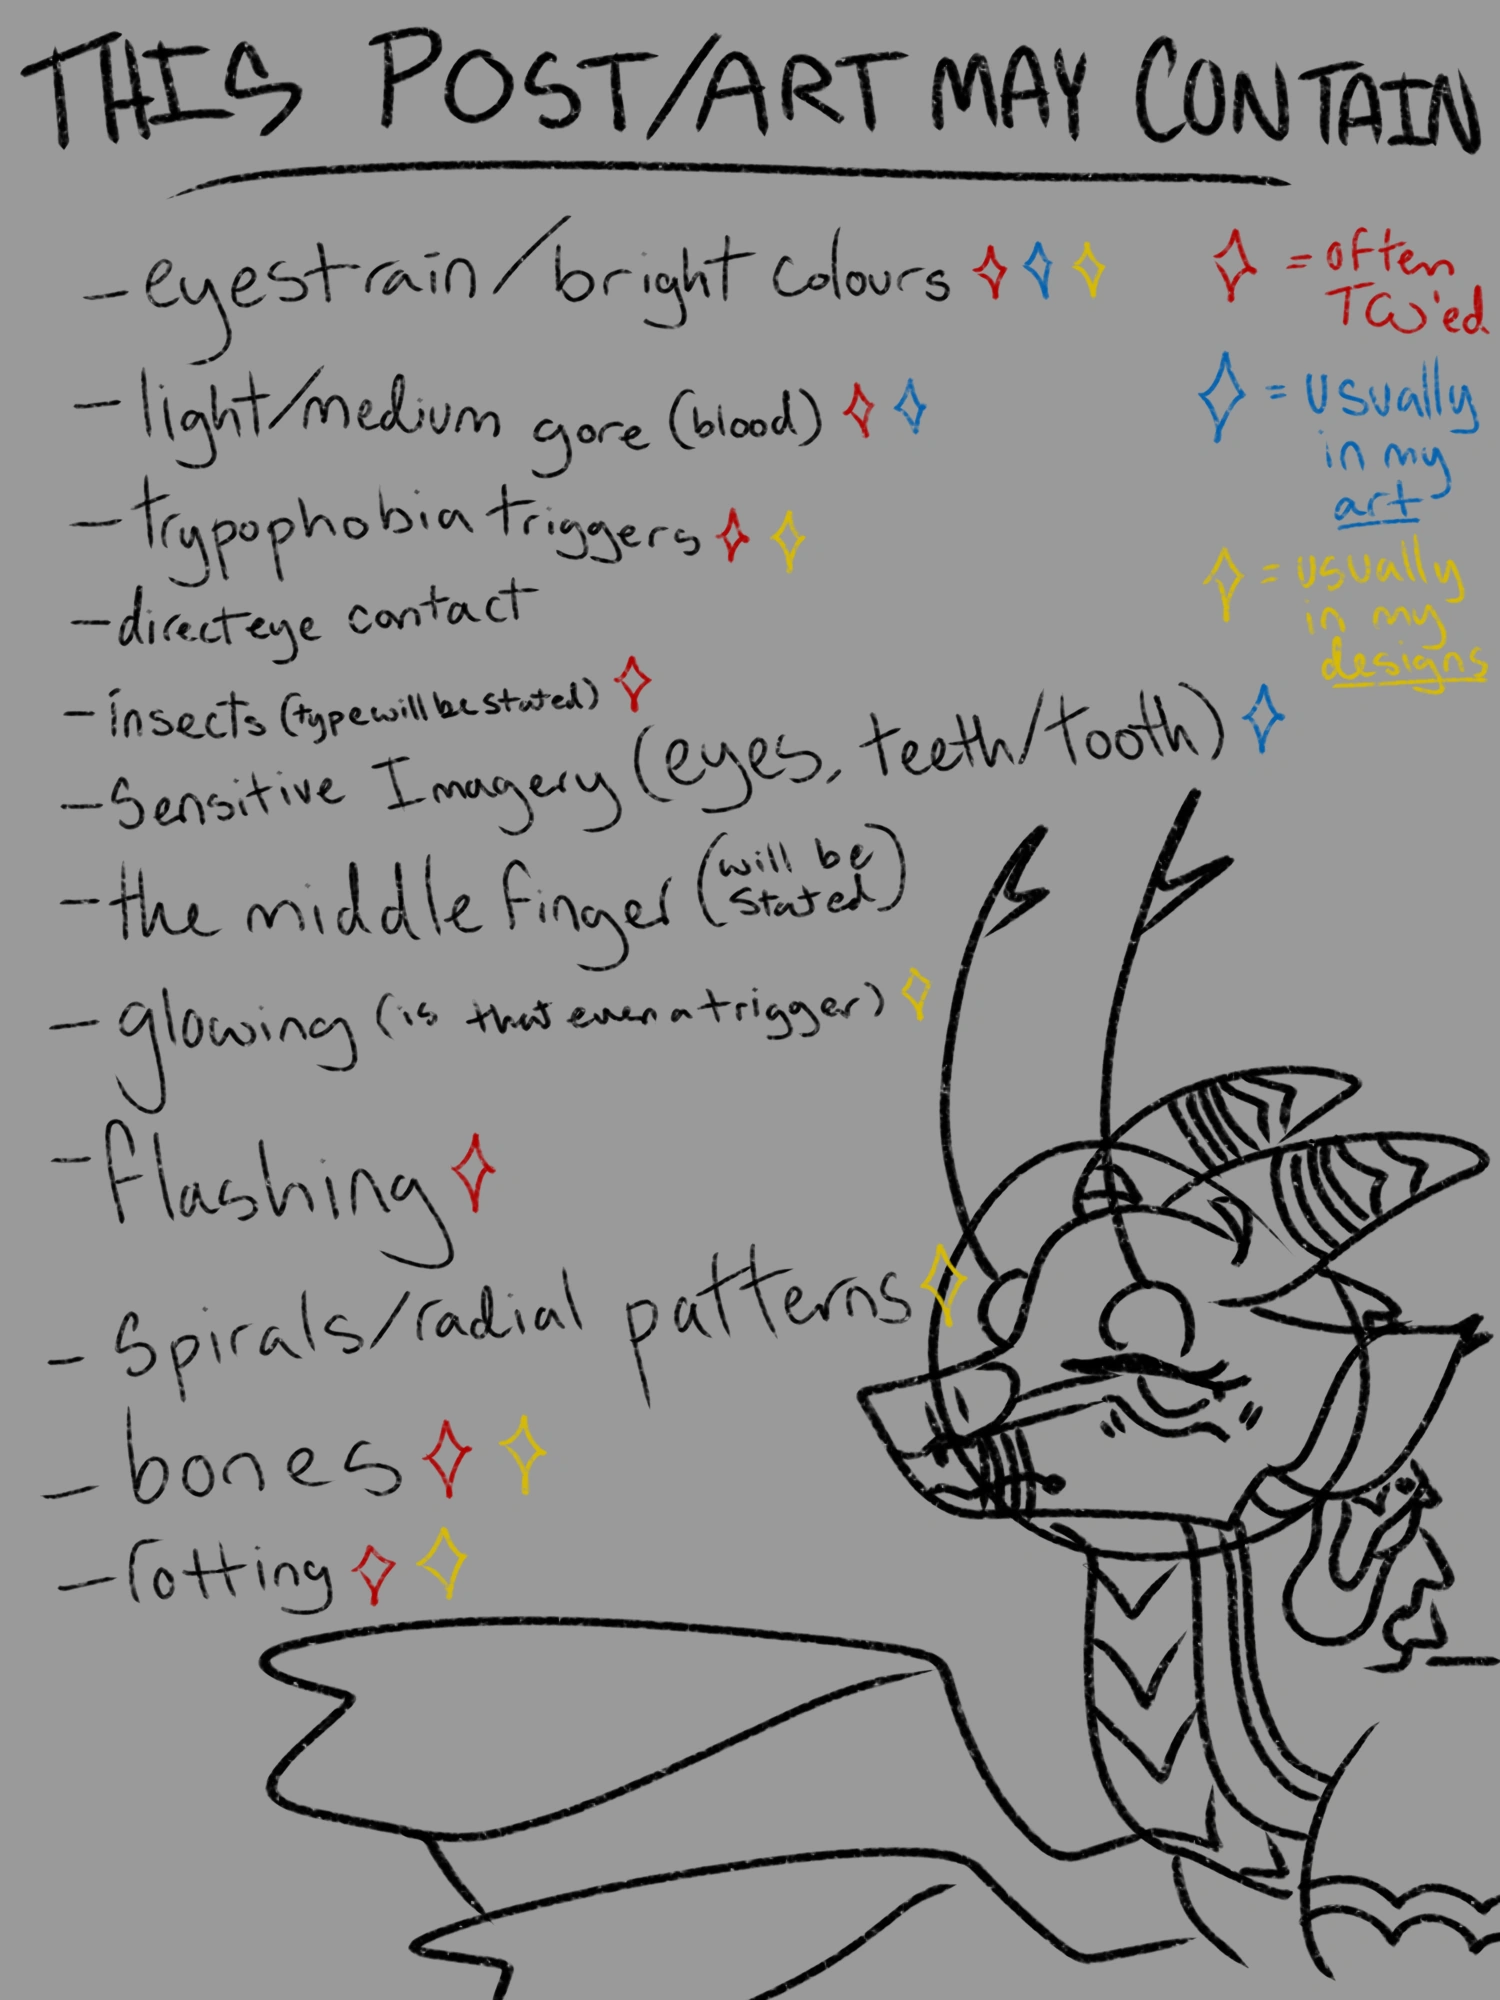 THIS POST/ART MAY CONTAIN
-eyestrain/bright colours
-light/medium gore (blood)
-trypophobia triggers
-direct eye contact
-insects (type will be stated)
-Sensitive Imagery (eyes, teeth/tooth)
-the middle finger (will be
stated)
-glowing (is that even a trigger)
-flashing
-Spirals/radial patterns
-bones
-rotting
= often
TW'ed
= usually
in my
art
= usually
in my
designs